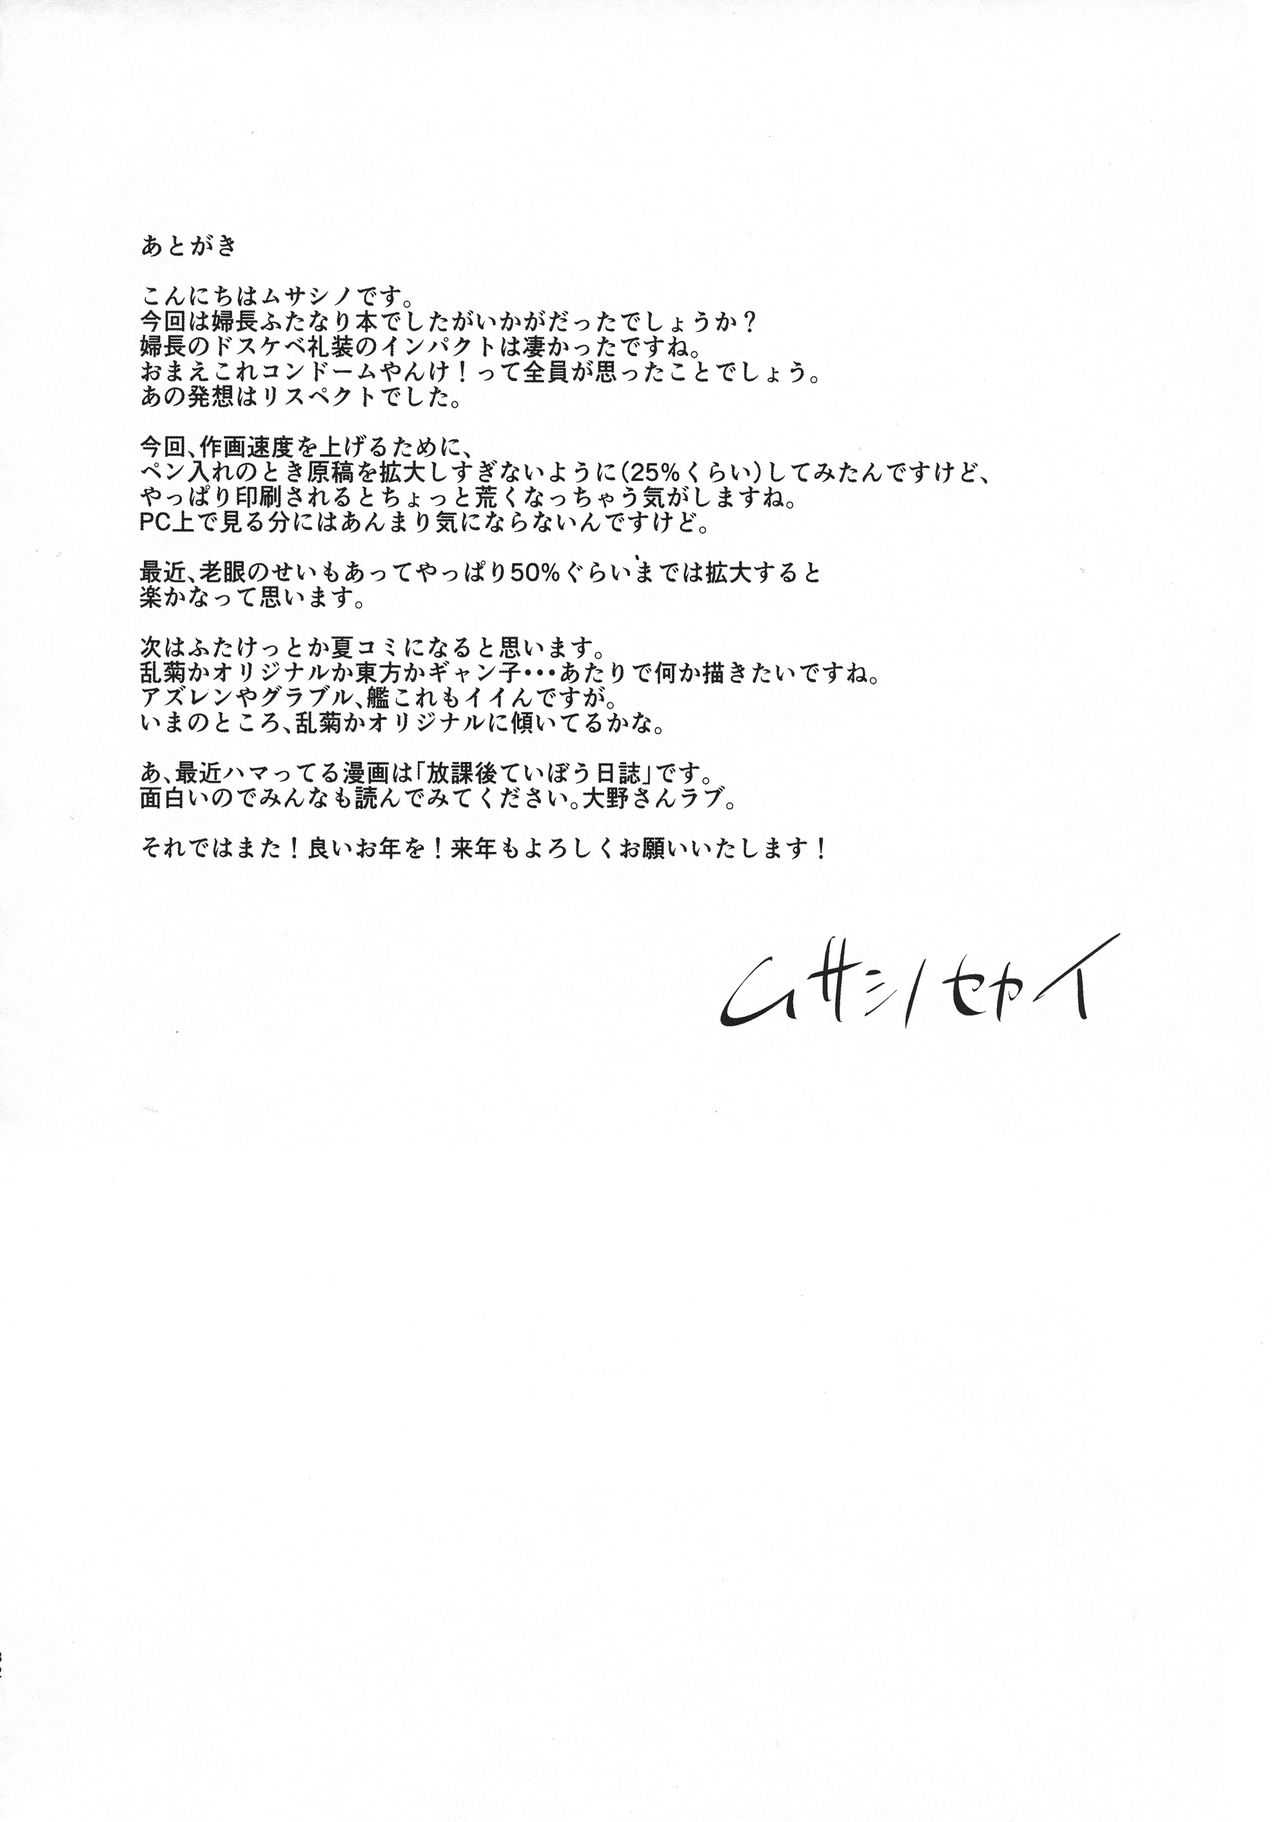 あとがき
こんにちはムサシノです。
今回は婦長ふたなり本でしたがいかがだったでしょうか？
婦長のドスケベ礼装のインパクトは凄かったですね。
おまえこれコンドームやんけ！って全員が思ったことでしょう。
あの発想はリスペクトでした。
今回、作画速度を上げるために、
ペン入れのとき原稿を拡大しすぎないように（25%くらい）してみたんですけど、
やっぱり印刷されるとちょっと荒くなっちゃう気がしますね。
PC上で見る分にはあんまり気にならないんですけど。
最近、老眼のせいもあってやっぱり50%ぐらいまでは拡大すると
楽かなって思います。
次はふたけっとか夏コミになると思います。
乱菊かオリジナルか東方かギャン子・・・あたりで何か描きたいですね。
アズレンやグラブル、艦これもイイんですが。
いまのところ、乱菊かオリジナルに傾いてるかな。
あ、最近ハマってる漫画は「放課後ていぼう日誌」です。
面白いのでみんなも読んでみてください。大野さんラブ。
それではまた！良いお年を！来年もよろしくお願いいたします！
ムサシノセカイ